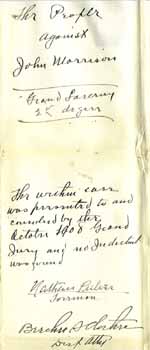 The People
against
John Morrison
Grand Larceny
2d degree
The within case
was presented to and
considered by the
October 1900 Grand
Jury and no Indictment
was found
Foreman
Dist Atty